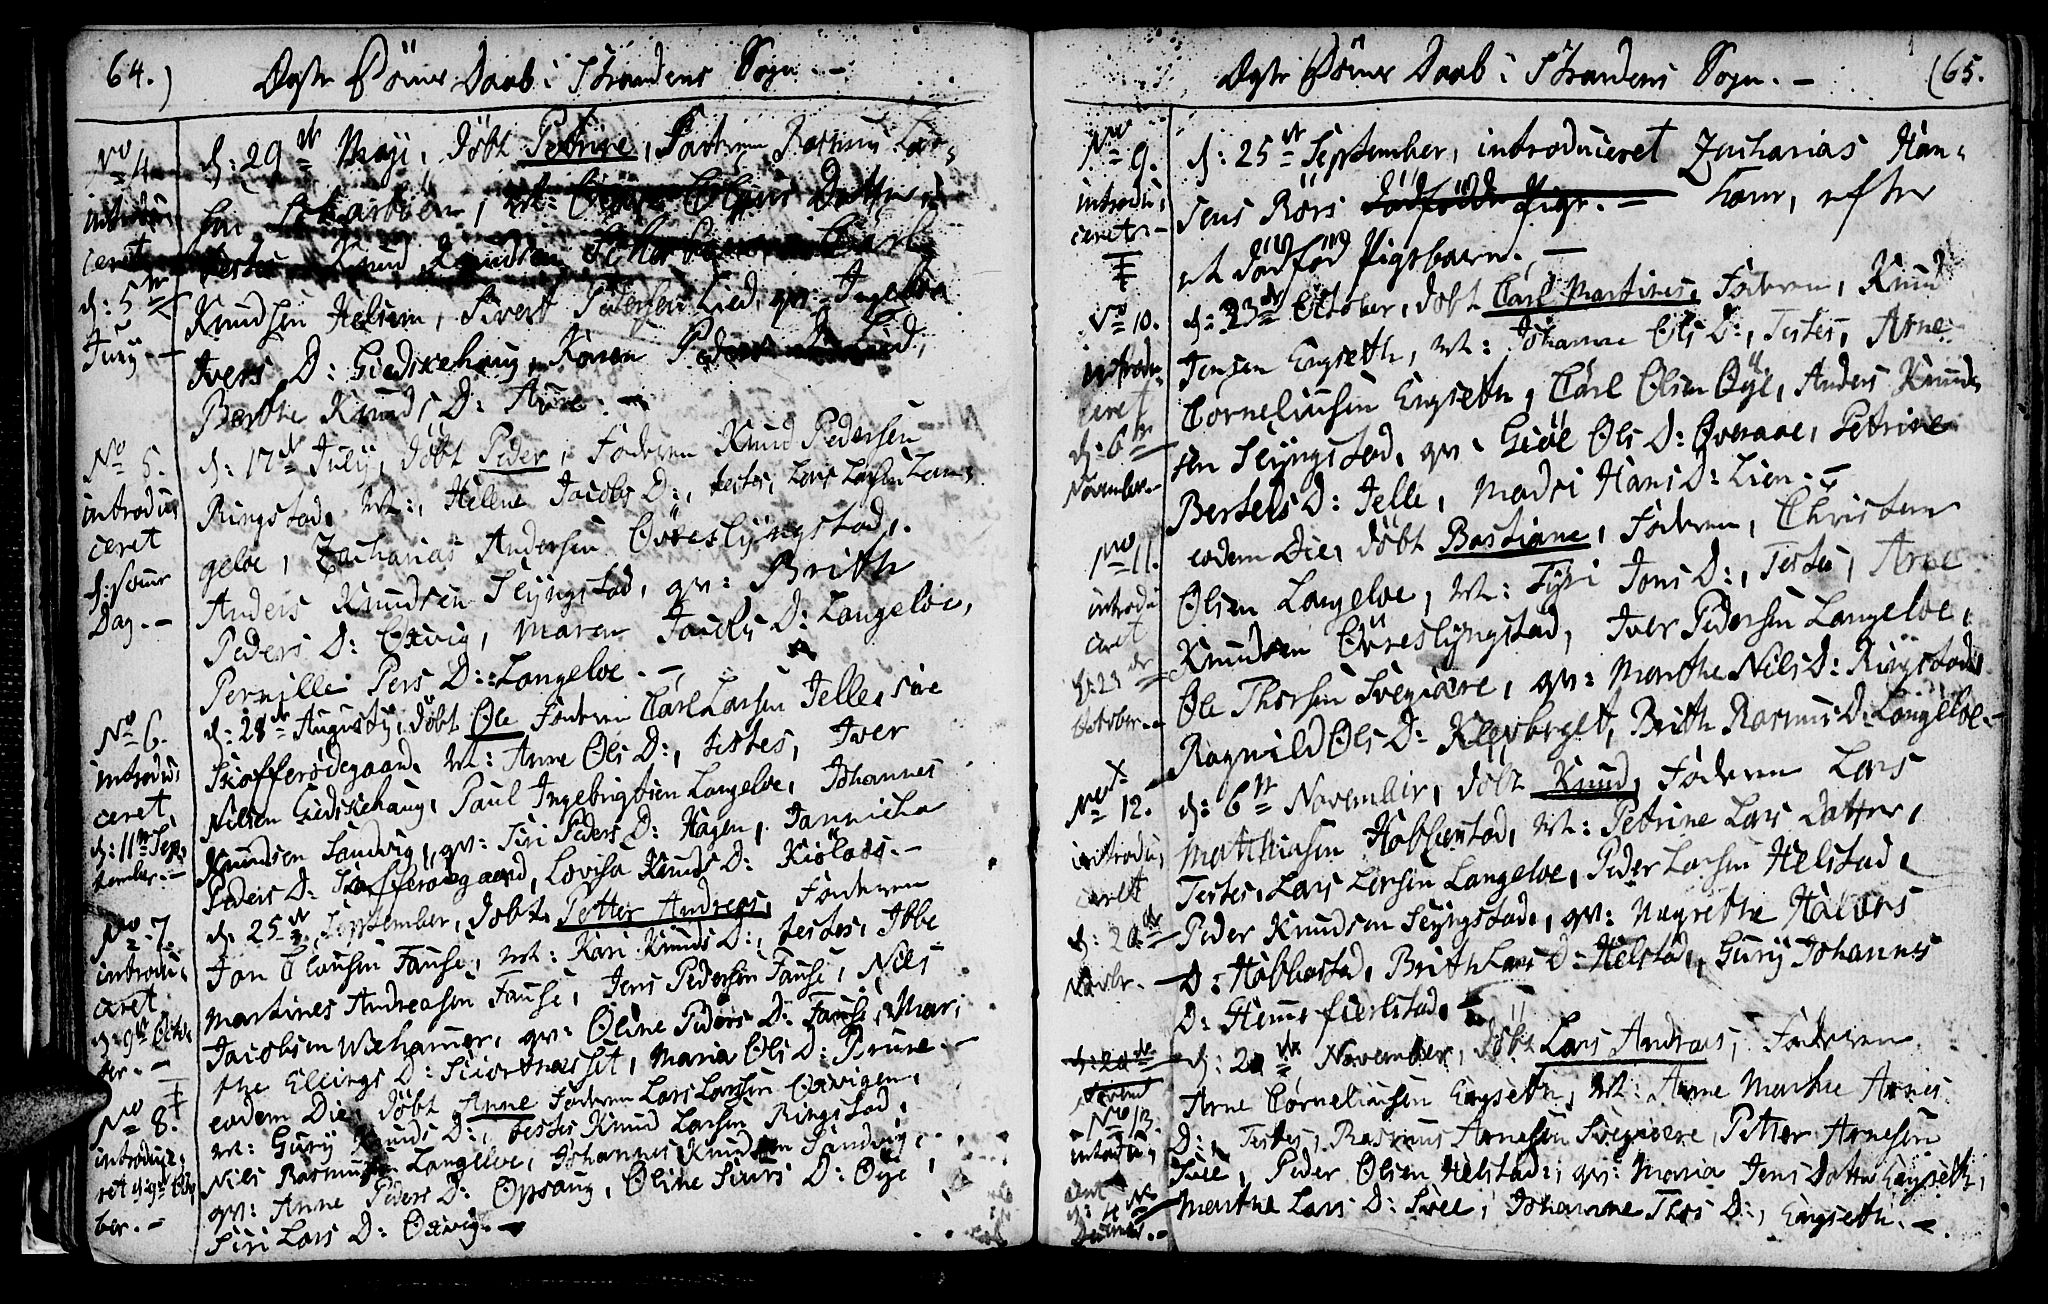 64.)
Ægte Börns Daab i Strandens Sogn. -
No 4
introdu,
ceret
d: 5te
Juny. -
d: 29de Maji, döbt Petrine, Faderen Rasmus Lar,
sen
testes Knud Knudsen
Knudsen Helsem, Sivert Pedersen Lied, qv: Ingebor
Ivers D: Giedskehaug, Karen Peders D: Lied,
Berthe Knuds D: Aure. -
No 5.
introdu,
ceret
d: samme
Dag. -
d: 17de July, döbt Peder, Faderen Knud Pedersen
Ringstad, M:, Helene Jacobs D:, testes, Lars Larsen Lan,
geloe, Zacharias Andersen Övreslyngstad,
Anders Knudsen Slyngstad, qv: Brith
Peders D: Oxvig, Maren Jacobs D: Langeloe,
Pernille Pers D: Langeloe. -
No 6.
introdu,
ceret,
d: 11te Sep,
tember. -
d: 28de Augusty, döbt Ole Faderen Carl Larsen Jelle, sive
Skafferödegaard, M: Anne Ols D:, testes, Iver
Nilsen Giedskehaug, Paul Ingebrigtsen Langeloe, Johannes
Knudsen Sandvig, qv: Siri Peders D: Hagen, Jannicha
Peders D: Skafferödegaard, Lovisa Knuds D: Kiölaas. -
No 7.
introdu,
ceret
d: 9de Octo,
ber. -
d: 25de September, döbt Petter Andreas, Faderen
Jon Clausen Fause, M: Kari Knuds D:, testes, Ibbe
Martines Andreasen Fause, Jens Pedersen Fause, Niels
Jacobsen Wiehammer, qv: Oline Peders D: Fause, Mar,
the Ellings D: Skiortnæsset, Maria Ols D: Brune. -
No 8.
introduce,
ret d: 9de Octo,
ber. -
eodem Die, döbt Anne Faderen Lars Larsen Oxvigen,
M: Gury Knuds D:, testes Knud Larsen Ringstad,
Niels Rasmussen Langeloe, Johannes Knudsen Sandvig,
qv: Anne Peders D: Opsaug, Oline Siurs D: Øye,
Siri Lars D: Oxvig. -
Ægte Börns Daab i Strandens Sogn. -
(65.
No 9.
introdu,
ceret. -
d: 25de September, introduceret Zacharias Han,
sens Rörs dödfödde Pige. - Kone, efter
et dödföd Pigebarn. -
No 10.
introdu,
ceret
d: 6te
November. -
d: 23de October, döbt Carl Martines, Faderen, Knud
Jensen Engseth, M: Johanne Ols D:, Testes, Arne
Corneliusen Engseth, Carl Olsen Øye, Anders Knud,
sen Slyngstad, qv: Giöe Ols D: Overaae, Petrine
Bertels D: Jelle, Madri Hans D: Lien. -
No 11.
introdu,
ceret
d: 23de
October. -
eodem Die, döbt Bastiane, Faderen, Christen
Olsen Langeloe, M: Syri Jons D:, Testes, Arne
Knudsen Övreslyngstad, Iver Pedersen Langeloe,
Ole Thorsen Svegiære, qv: Marthe Nils D: Ringstad,
Ragnild Ols D: Kleverget, Brith Rasmus D: Langeloe. -
No 12.
introdu,
ceret
d: 20de
Novbr. -
d: 6te November, döbt Knud, Faderen Lars
Mathiasen Habbestad, M: Petrine Lars Datter,
Testes, Lars Larsen Langeloe, Peder Larsen Helstad,
Peder Knudsen Slyngstad, qv: Magrethe Halvors
D: Habbestad, Brith Lars D: Helstad, Gury Johannes
D: Stemmefierlstad. -
d: 20de
Novemb
No 13.
introdu,
ceret
d: 4de
Decmbr. -
d: 20de November, döbt Lars Andreas, Faderen
Arne Corneliusen Engseth, M: Anne Marthe Arnes
D:, Testes, Rasmus Arnesen Svegiære, Petter Arnesen
Svee, Peder Olsen Helstad, qv: Maria Jens Datter Engseth,
Marthe Lars D: Svee, Johanne Thos D:, Engseth. -